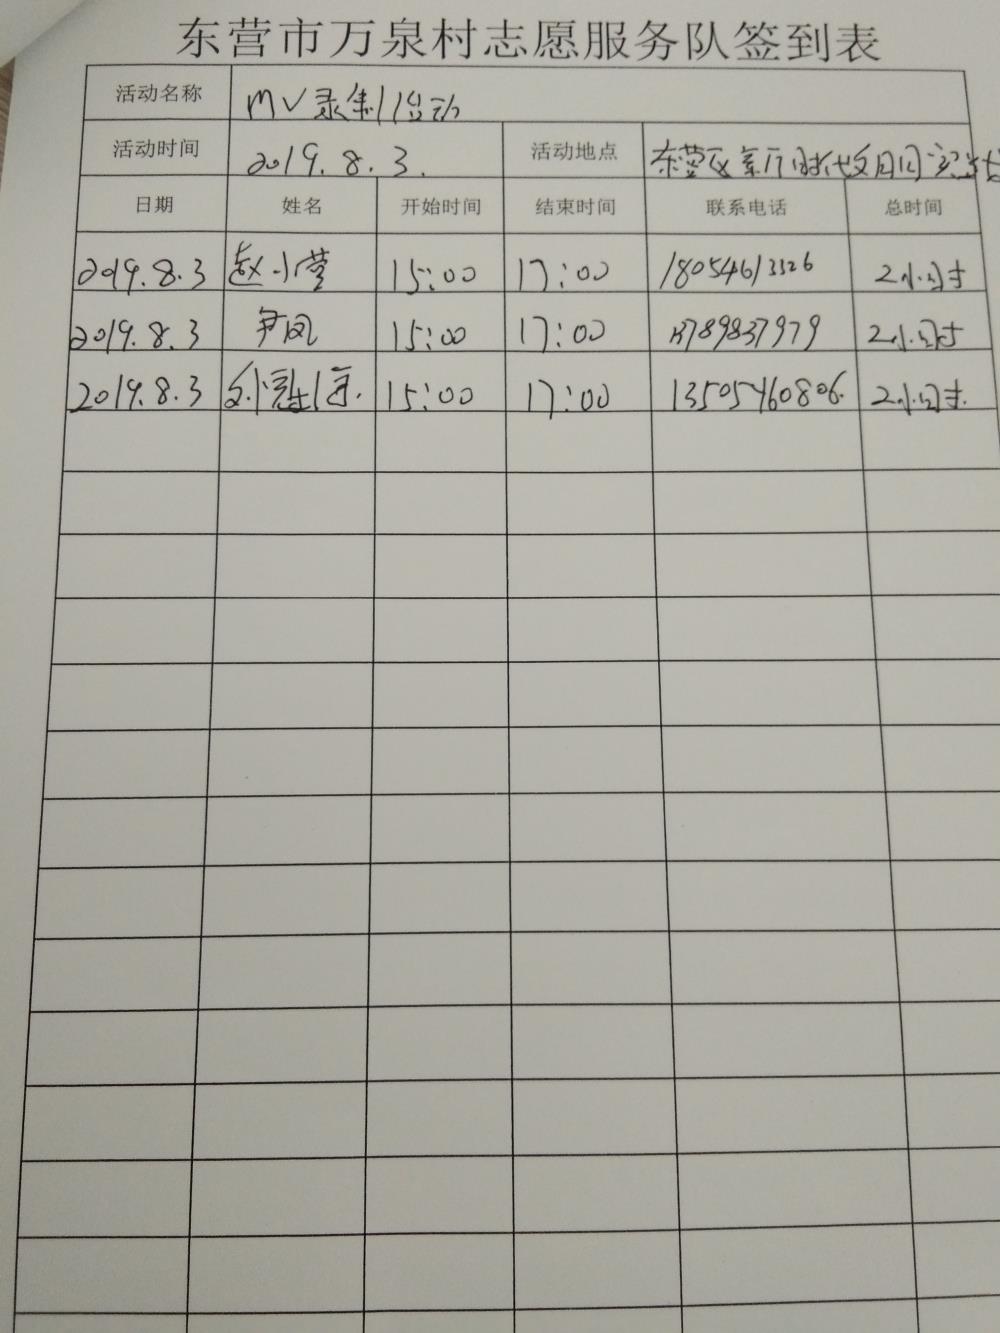 东营市万泉村志愿服务队签到表
活动名称 MV录制活动
活动时间 2019.8.3. 活动地点 东营区新时代文明实践
日期 姓名 开始时间 结束时间 联系电话 总时间
2019.8.3 赵小莹 15:00 17:00 18054613326 2小时
2019.8.3 尹凤 15:00 17:00 13789837979 2小时
2019.8.3 15:00 17:00 13505460806. 2小时.